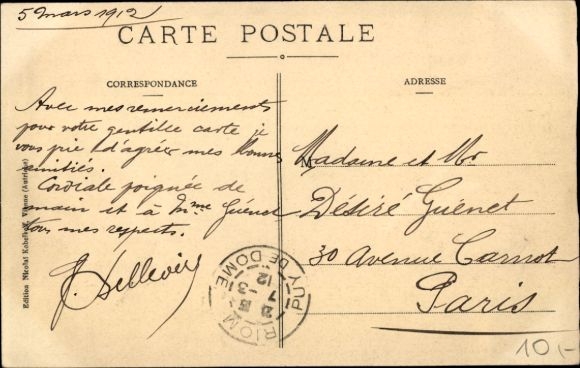 5 mars 1912
CARTE POSTALE
CORRESPONDANCE
ADRESSE
Avec mes remerciements
pour votre gentille carte je
vous prie d'agréer mes bonnes
amitiés.
Cordiale poignée de
main et à Mme Guénet
tous mes respects.
Madame et Mr
Désiré Guénet
30 Avenue Carnot
Paris
RIOM
PUY-DE-DOME
7 -3
12
10,-
Edition Nicolai Kobelkoff, Vienne (Autriche)